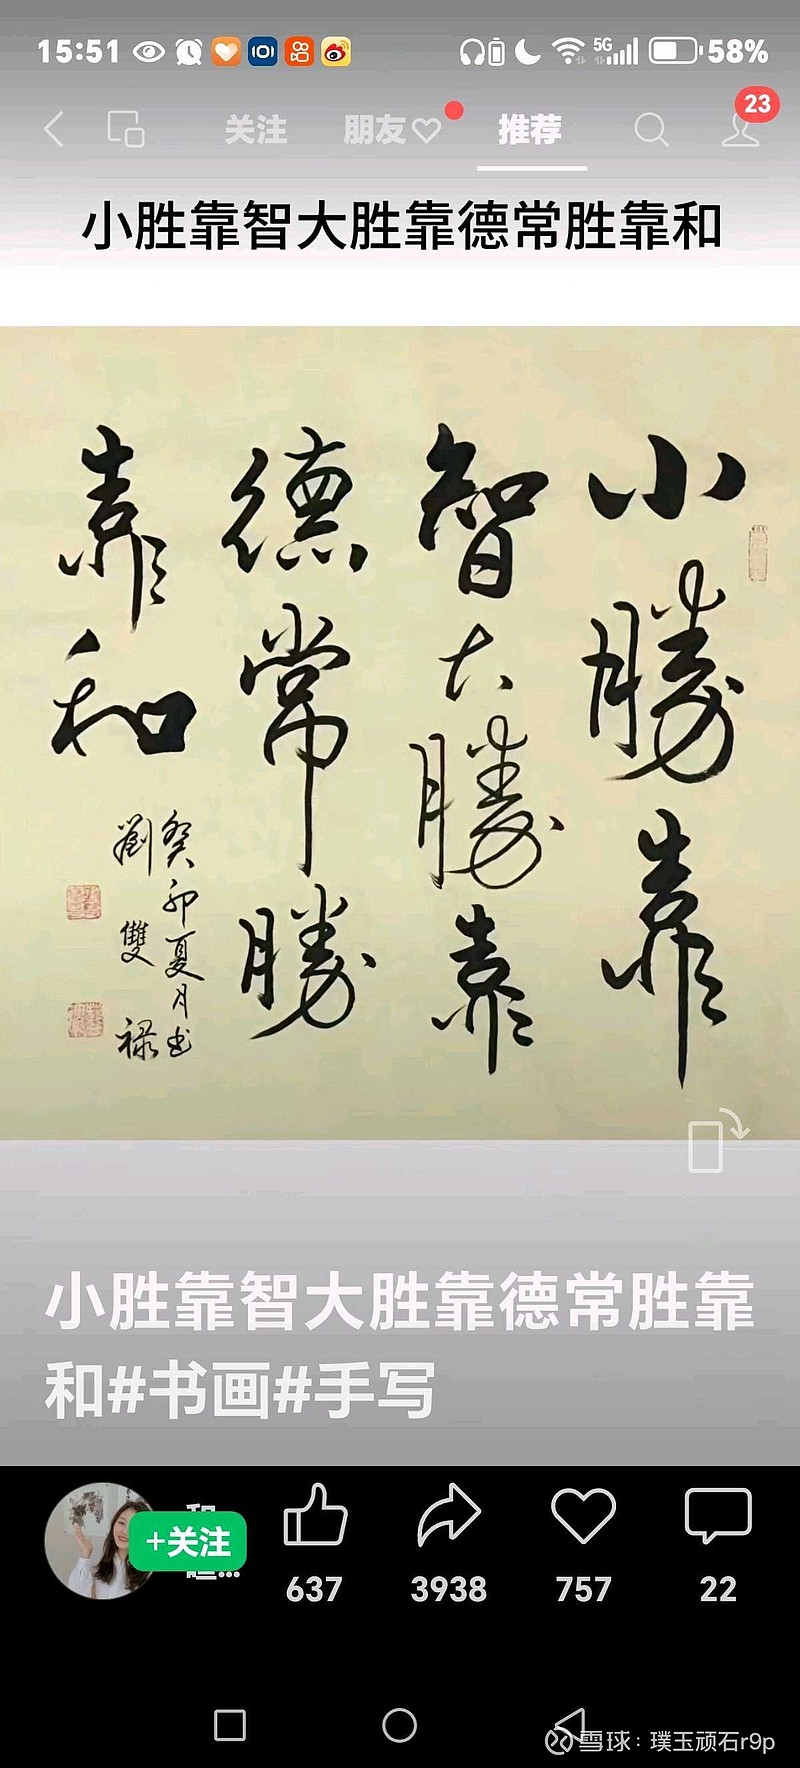 15:51 5G 58%
关注 朋友 推荐 23
小胜靠智大胜靠德常胜靠和
小勝靠
智大勝靠
德常勝
靠和
癸卯夏月书
劉雙禄
小胜靠智大胜靠德常胜靠
和#书画#手写
+关注
637 3938 757 22
雪球：璞玉顽石r9p